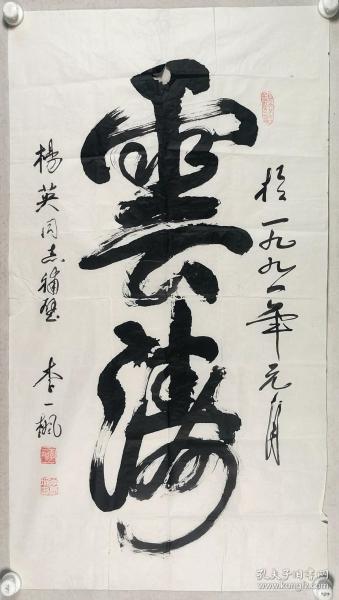 於一九九一年元月
雲濤
楊英同志補壁
李一楓
孔夫子旧书网
www.kongfz.com